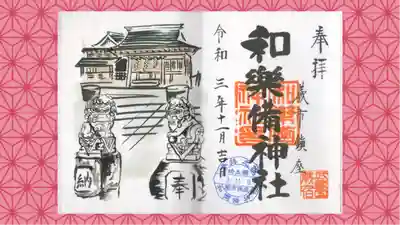 奉拝
蕨市鎮座
和樂備神社
令和三年十一月吉日
奉
納